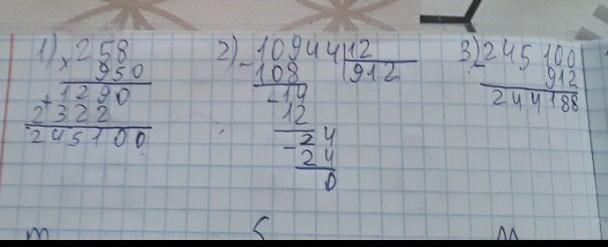 1) × 258
950
1290
+ 2322
245100
2) - 10944 | 12
108 | 912
- 14
12
- 24
24
0
3) - 245100
912
244188